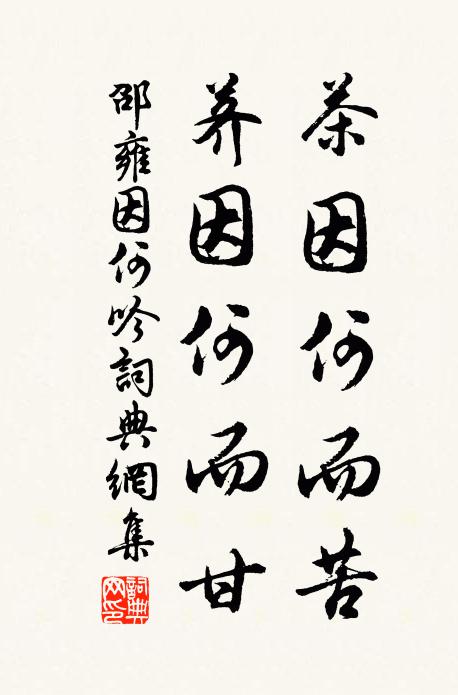 茶因何而苦
荠因何而甘
邵雍因何吟詞典網集
詞典网印